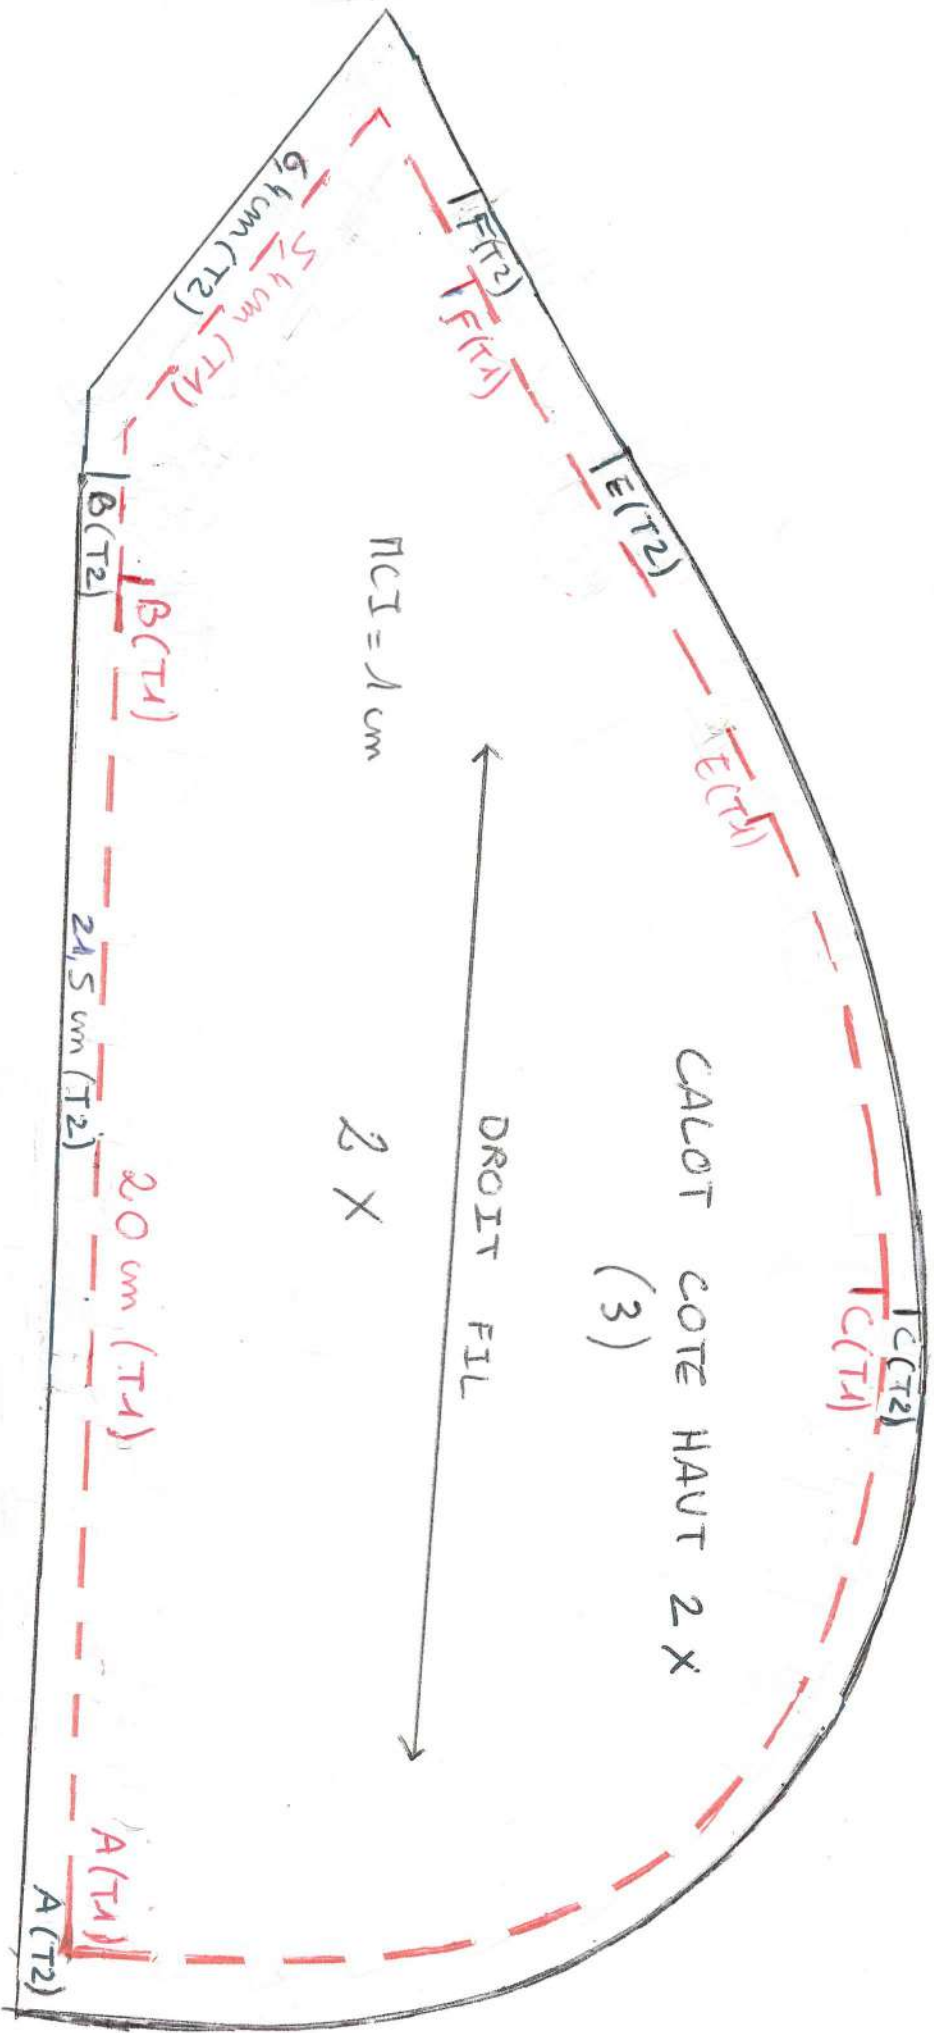 CALOT COTE HAUT 2 X
(3)
DROIT FIL
2 X
MCI = 1 cm
F(T2)
F(T1)
E(T2)
E(T1)
C(T2)
C(T1)
6,4 cm (T2)
5,4 cm (T1)
B(T2)
B(T1)
21,5 cm (T2)
20 cm (T1)
A(T1)
A(T2)